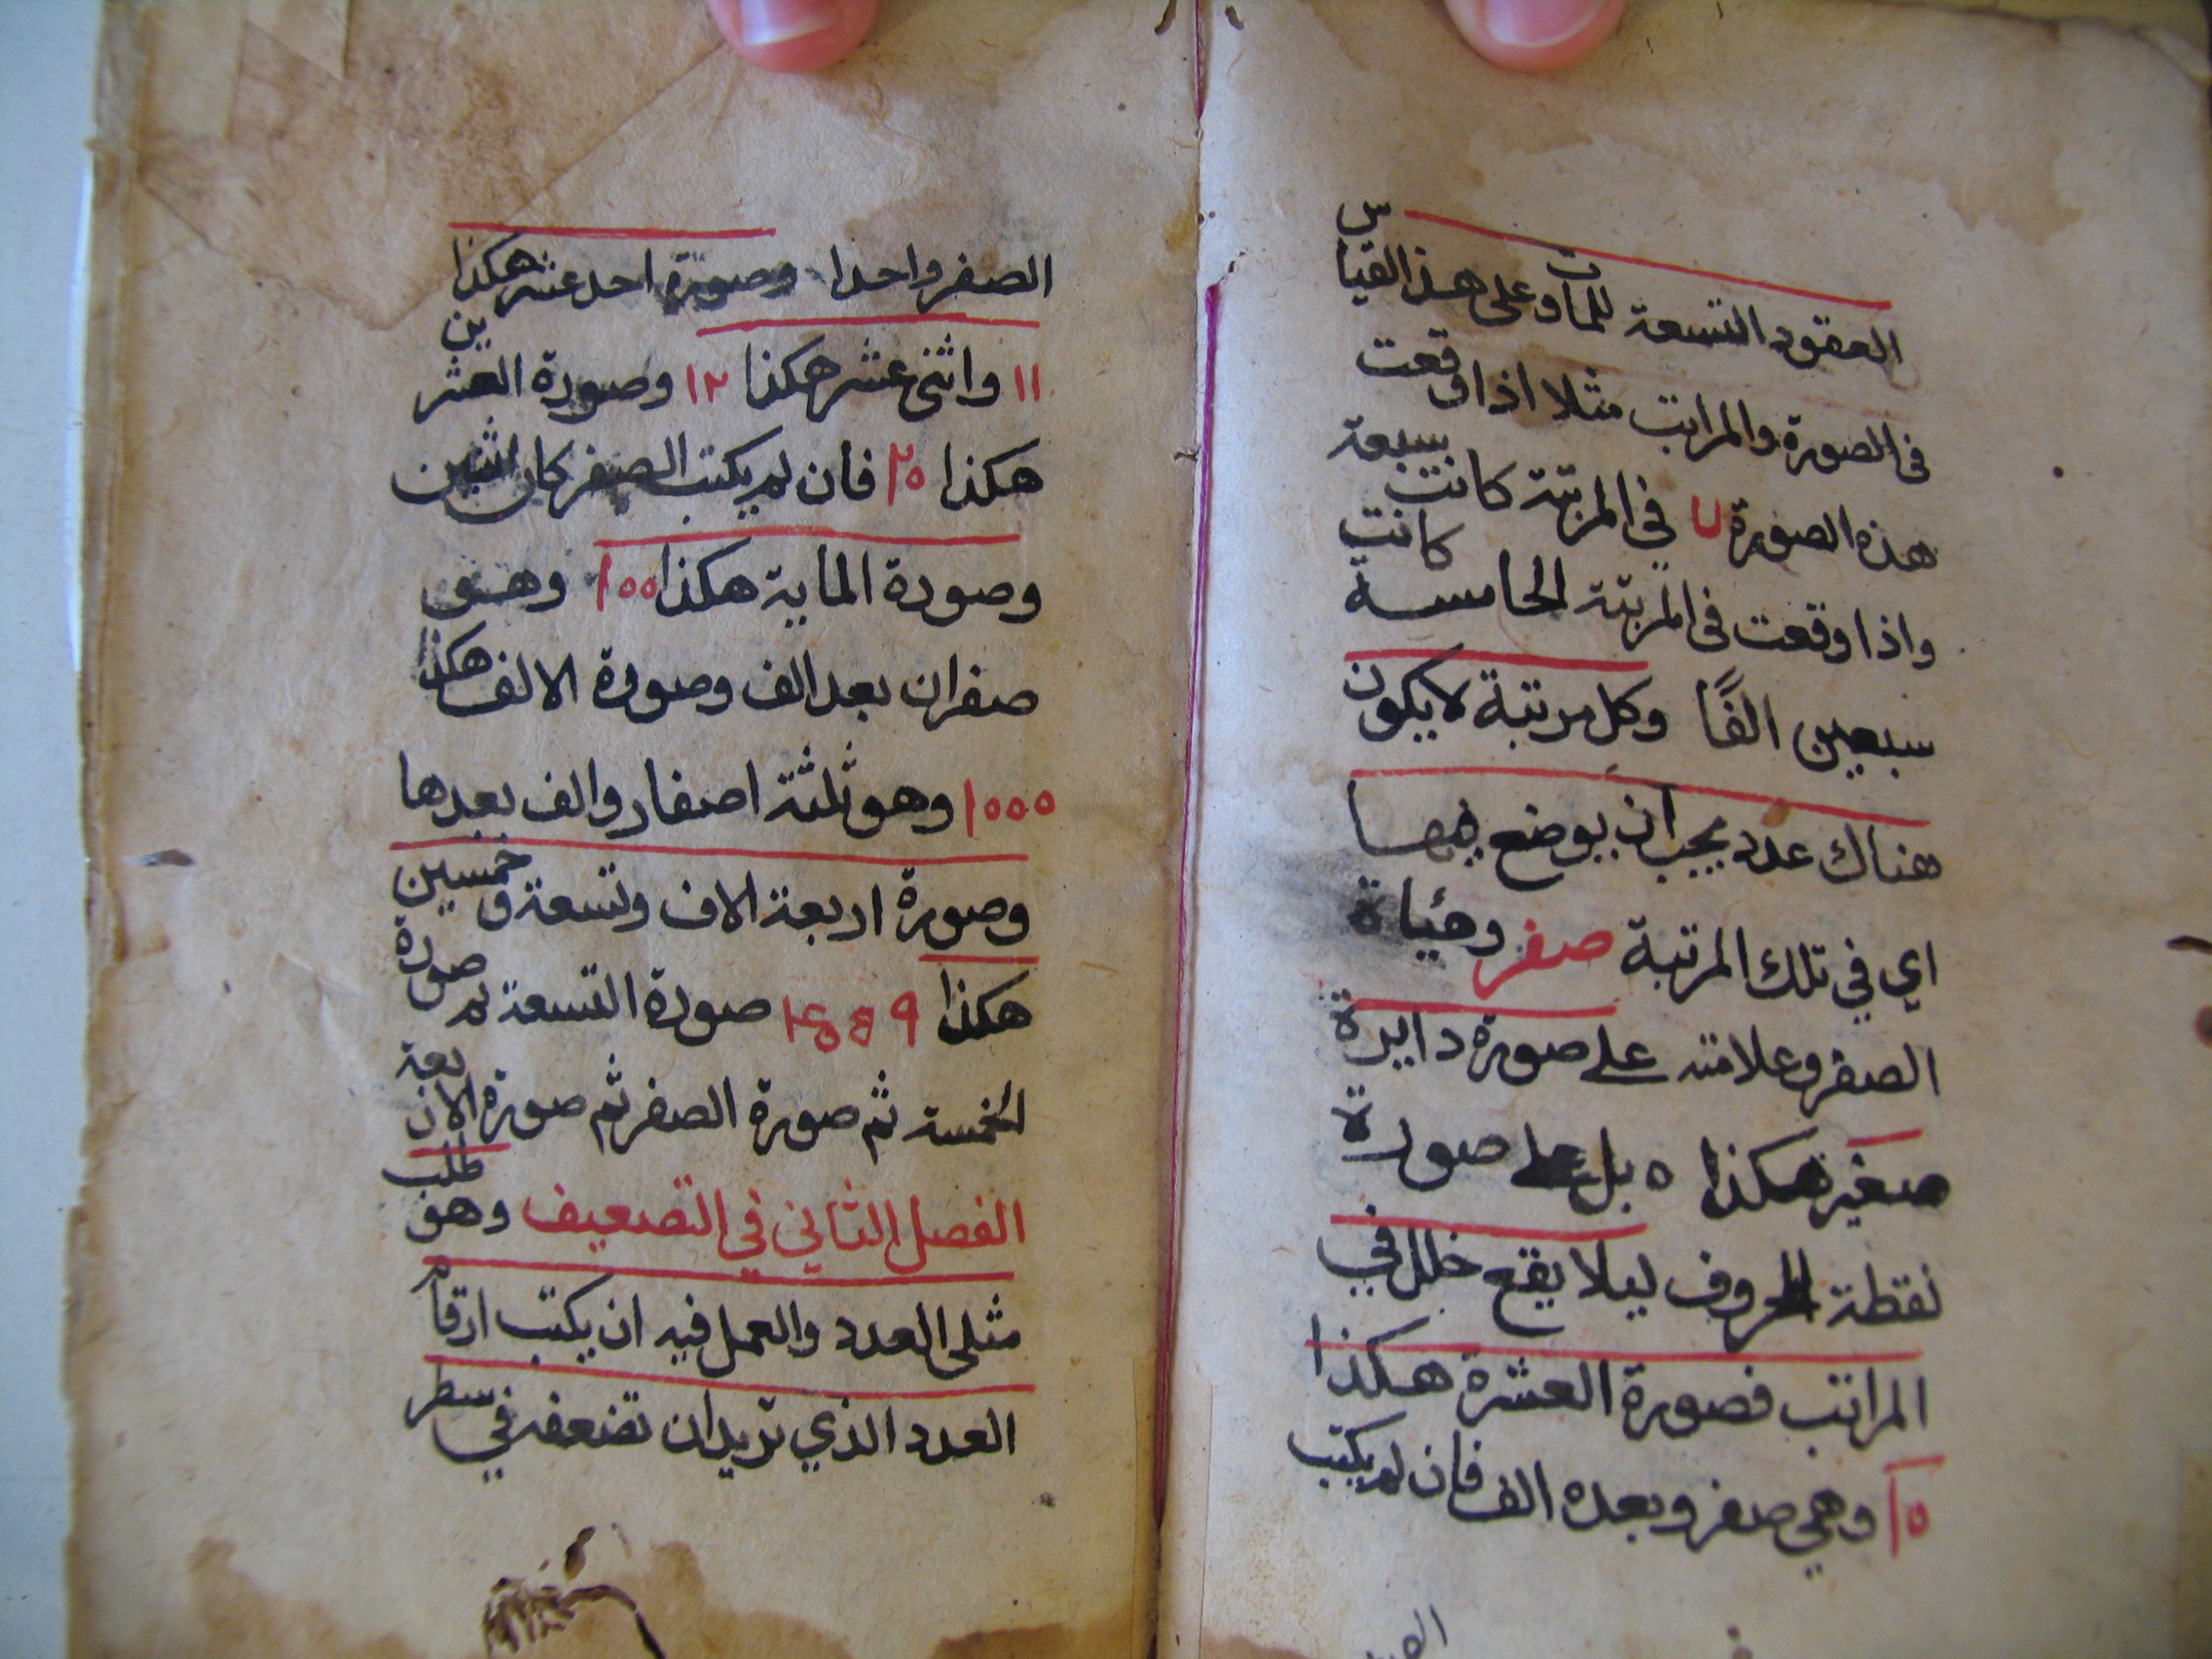 العقود التسعة للمأت وعلى هذا القياس
فى الصورة والمراتب مثلا اذا وقعت
هذه الصورة ٧ في المرتبة كانت سبعة
واذا وقعت فى المرتبة الخامسة كانت
سبعين الفًا وكل مرتبة لا يكون
هناك عدد يجب ان يوضع فيها
اي في تلك المرتبة صفر وهيأة
الصفر وعلامته على صورة دايرة
صغيرة هكذا ٥ بل على صورة
نقطة الحروف ليلا يقع خلل في
المراتب فصورة العشرة هكذا
١٥ وهي صفر وبعده الف فان لم يكتب
الصفر واحدا وصورة احد عشر هكذا
١١ واثنى عشر هكذا ١٢ وصورة العشرين
هكذا ٢٥ فان لم يكتب الصفر كان اثنين
وصورة الماية هكذا ١٥٥ وهو
صفران بعد الف وصورة الالف هكذا
١٥٥٥ وهو ثلثة اصفار والف بعدها
وصورة اربعة الاف وتسعة وخمسين
هكذا صورة التسعة ثم صورة
الخمسة ثم صورة الصفر ثم صورة الاربعة
الفصل الثاني في التضعيف وهو طلب
مثلى العدد والعمل فيه ان يكتب ارقام
العدد الذي تريد ان تضعفه في سطر